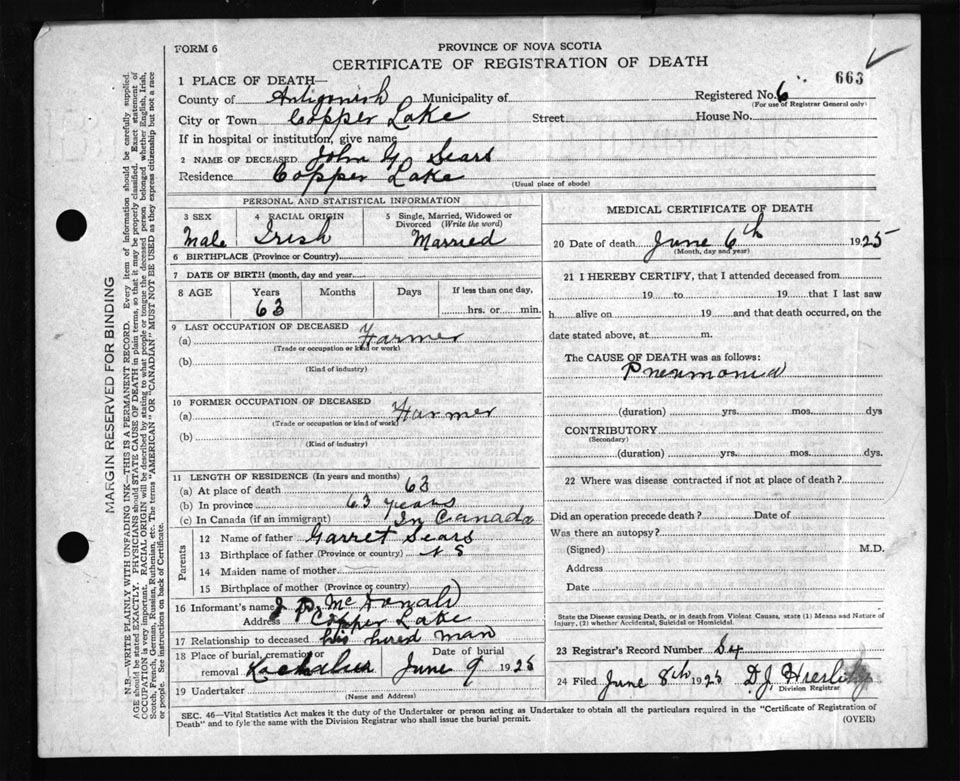 FORM 6
PROVINCE OF NOVA SCOTIA
CERTIFICATE OF REGISTRATION OF DEATH
663
1 PLACE OF DEATH—
County of Antigonish Municipality of
Registered No. 6
(For use of Registrar General only)
City or Town Copper Lake Street House No.
If in hospital or institution, give name
2 NAME OF DECEASED John G. Sears
Residence Copper Lake
(Usual place of abode)
PERSONAL AND STATISTICAL INFORMATION
3 SEX
Male
4 RACIAL ORIGIN
Irish
5 Single, Married, Widowed or Divorced (Write the word)
Married
6 BIRTHPLACE (Province or Country)
7 DATE OF BIRTH (month, day and year)
8 AGE Years Months Days If less than one day,
63 hrs. or min.
9 LAST OCCUPATION OF DECEASED
(a) Farmer
(Trade or occupation or kind or work)
(b)
(Kind of industry)
10 FORMER OCCUPATION OF DECEASED
(a) Farmer
(Trade or occupation or kind of work)
(b)
(Kind of industry)
11 LENGTH OF RESIDENCE (In years and months)
(a) At place of death 63
(b) In province 63 years
(c) In Canada (if an immigrant) In Canada
Parents
12 Name of father Garret Sears
13 Birthplace of father (Province or country) N S
14 Maiden name of mother
15 Birthplace of mother (Province or country)
16 Informant's name J D McDonald
Address Copper Lake
17 Relationship to deceased his hired man
18 Place of burial, cremation or removal
Date of burial
June 9 1925
19 Undertaker
(Name and Address)
MEDICAL CERTIFICATE OF DEATH
20 Date of death June 6th 1925
(Month, day and year)
21 I HEREBY CERTIFY, that I attended deceased from
19 to 19 that I last saw
h alive on 19 and that death occurred, on the
date stated above, at m.
The CAUSE OF DEATH was as follows:
Pneumonia
(duration) yrs. mos. dys
CONTRIBUTORY
(Secondary)
(duration) yrs. mos. dys.
22 Where was disease contracted if not at place of death?
Did an operation precede death? Date of
Was there an autopsy?
(Signed) M.D.
Address
Date
State the Disease causing Death, or in death from Violent Causes, state (1) Means and Nature of
Injury, (2) whether Accidental, Suicidal or Homicidal.
23 Registrar's Record Number Six
24 Filed June 8th 1925 D.J.
Division Registrar
SEC. 46—Vital Statistics Act makes it the duty of the Undertaker or person acting as Undertaker to obtain all the particulars required in the "Certificate of Registration of
Death" and to fyle the same with the Division Registrar who shall issue the burial permit.
(OVER)
MARGIN RESERVED FOR BINDING
N.B.—WRITE PLAINLY WITH UNFADING INK—THIS IS A PERMANENT RECORD. Every item of information should be carefully supplied.
AGE should be stated EXACTLY. PHYSICIANS should STATE CAUSE OF DEATH in plain terms, so that it may be properly classified. Exact statement of
OCCUPATION is very important. RACIAL ORIGIN will be described by stating to what people or tongue the deceased person belonged whether English, Irish,
Scotch, French, German, Russian, Ruthenian, etc. The terms "AMERICAN" OR "CANADIAN" MUST NOT BE USED as they express citizenship but not a race
or people. See instructions on back of Certificate.